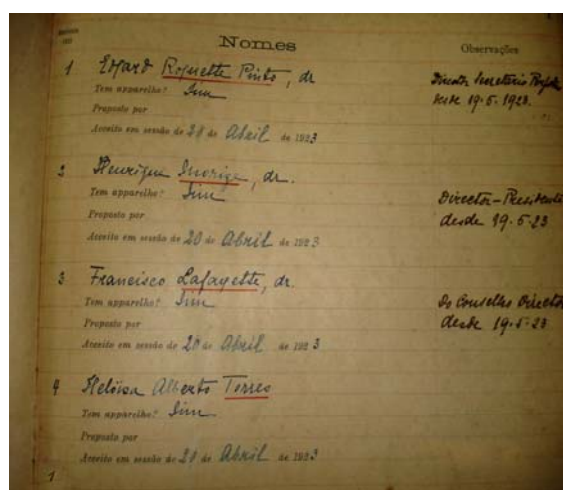 Nomes
Observações
1 Edgard Roquette Pinto, dr
Tem apparelho? Sim
Proposto por
Acceito em sessão de 20 de Abril de 1923
Director Secretario
desde 19-5-1923.
2 Henrique Morize, dr.
Tem apparelho? Sim
Proposto por
Acceito em sessão de 20 de Abril de 1923
Director-Presidente
desde 19-5-23
3 Francisco Lafayette, dr.
Tem apparelho? Sim
Proposto por
Acceito em sessão de 20 de Abril de 1923
Do Conselho Director
desde 19-5-23
4 Heloisa Alberto Torres
Tem apparelho? Sim
Proposto por
Acceito em sessão de 20 de Abril de 1923